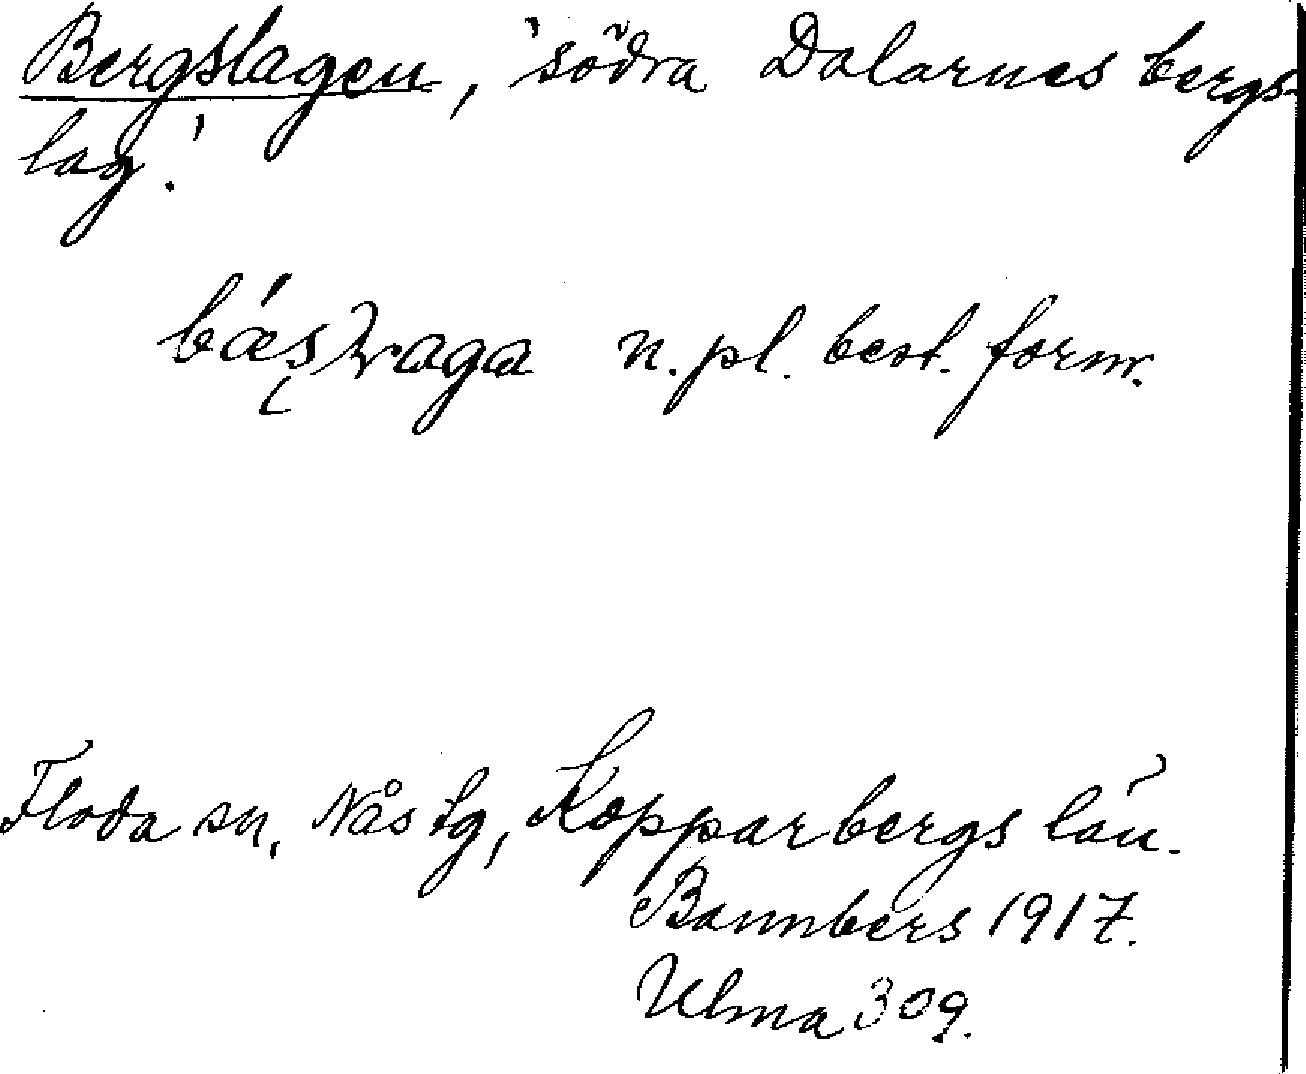 Bergslagen, 'södra Dalarnes bergs-
lag.'
n. pl. best. form.
Floda sn, Nås tg, Kopparbergs län.
Bannbers 1917.
Ulma 309.